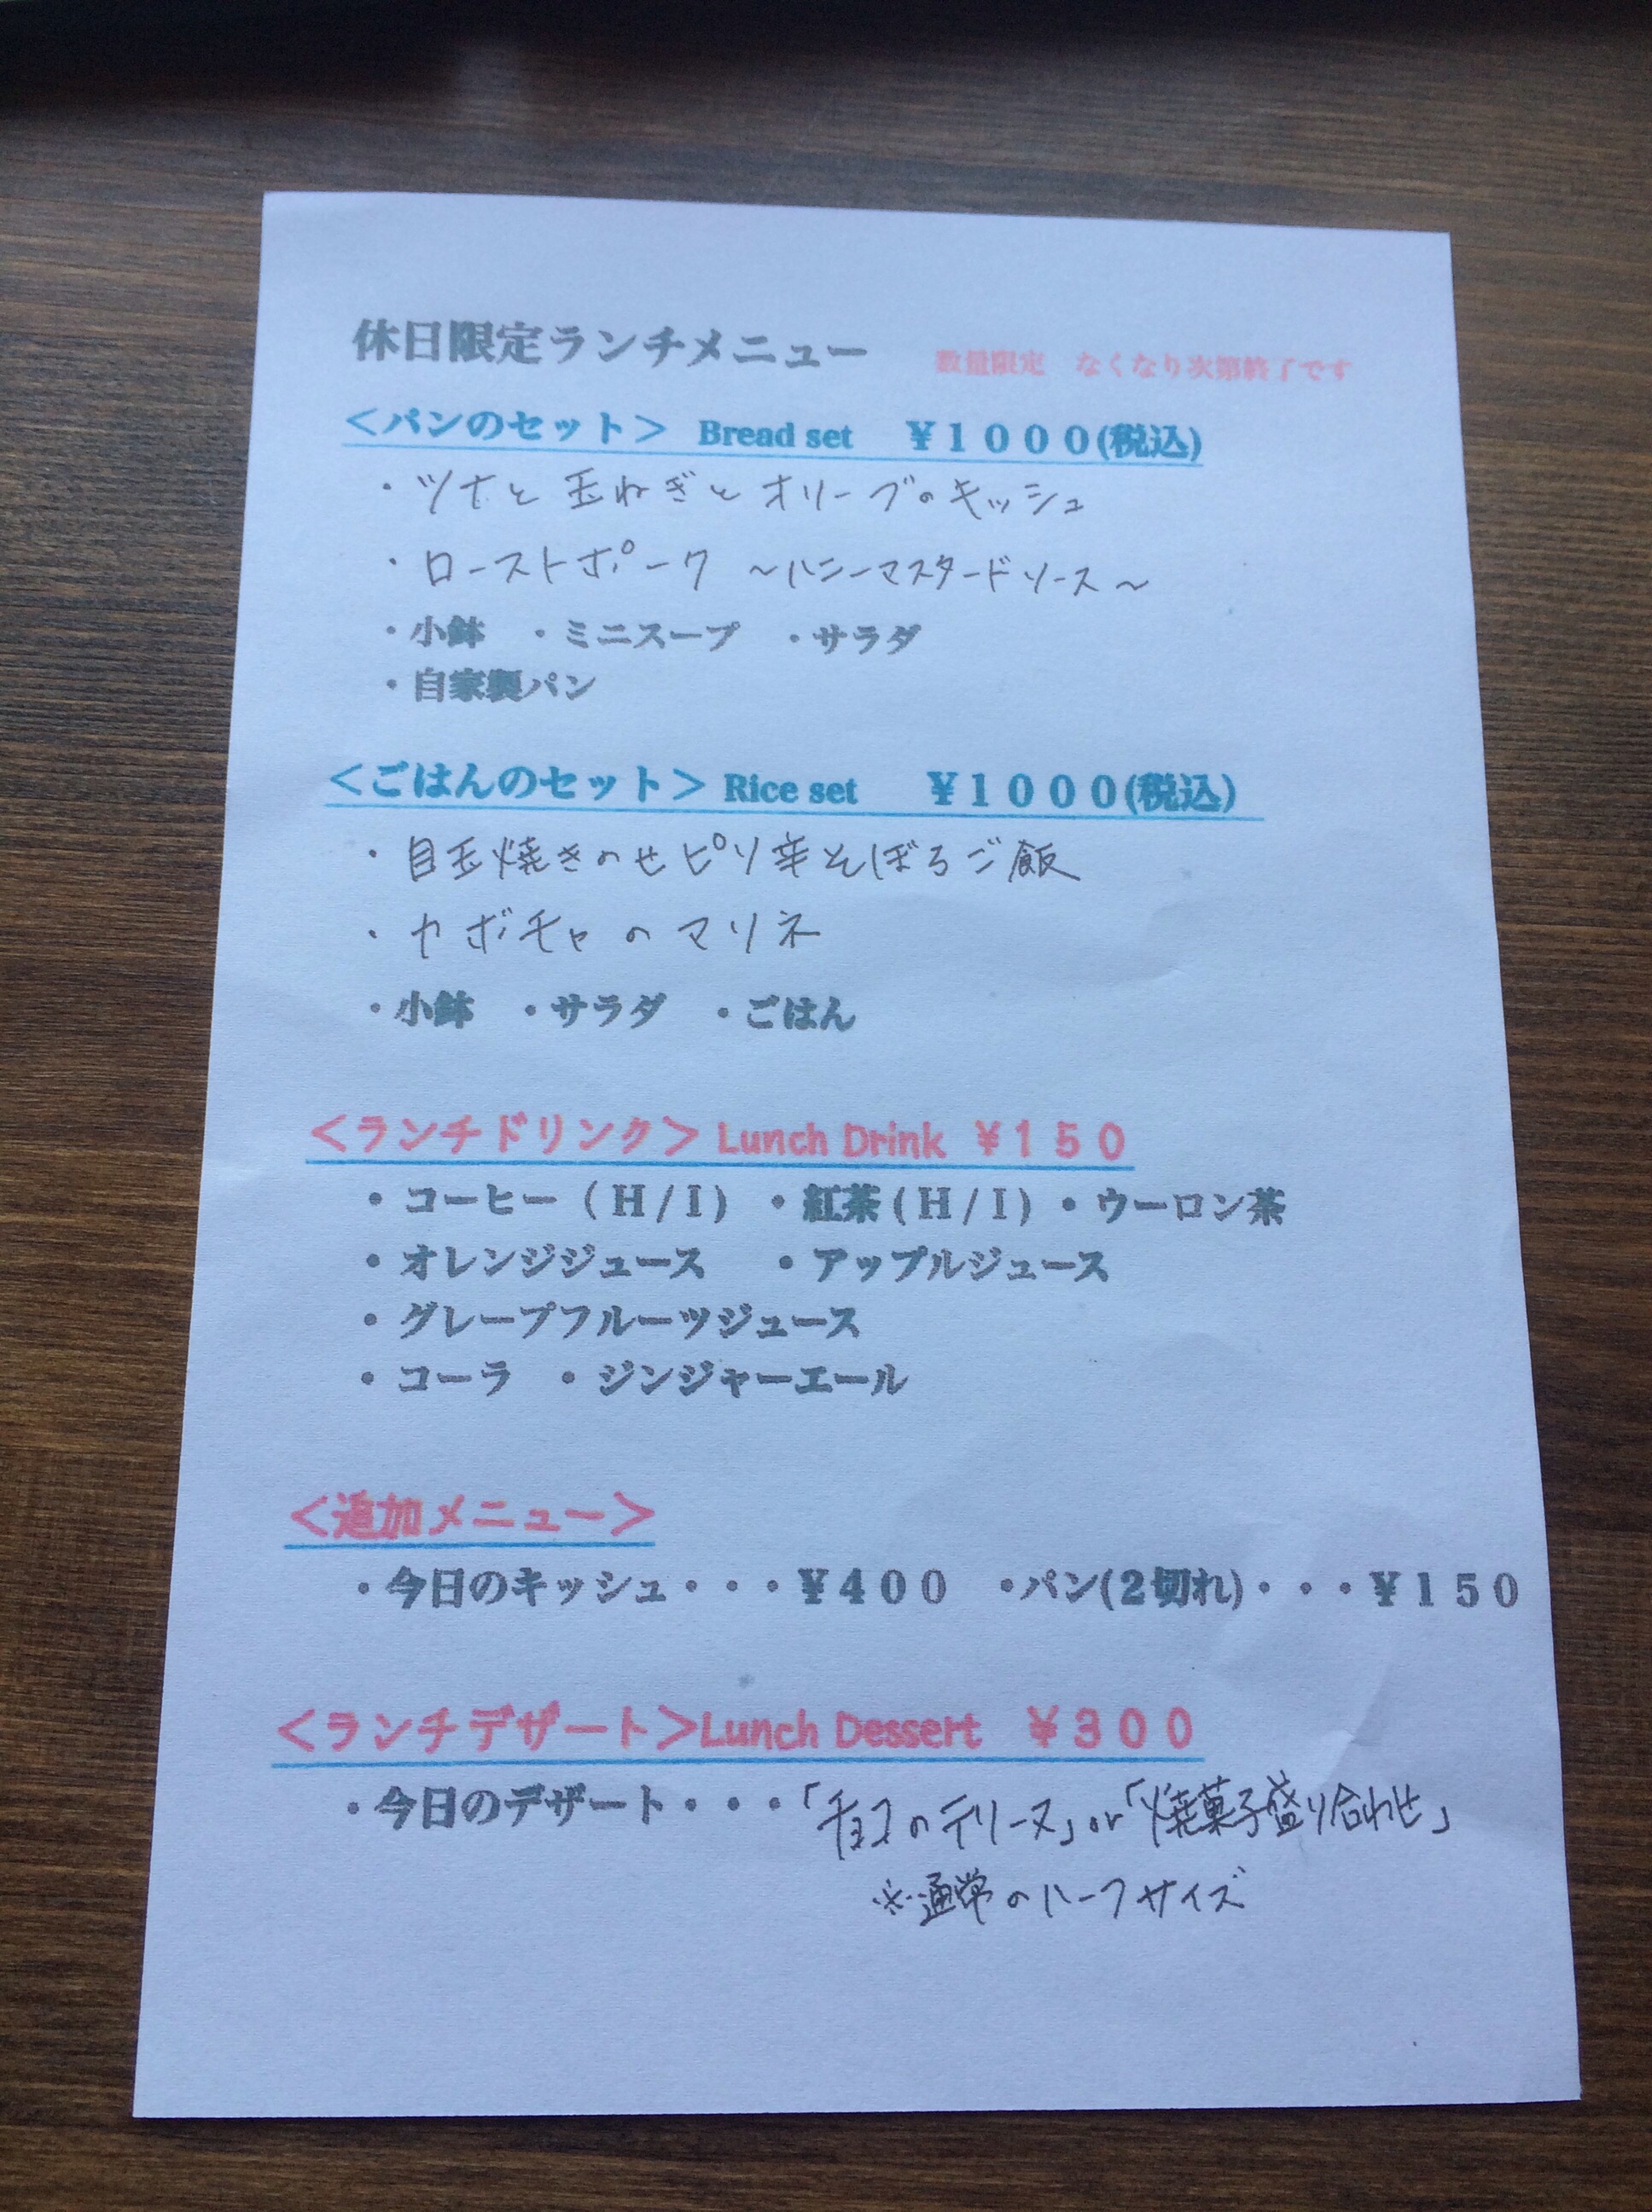 休日限定ランチメニュー 数量限定 なくなり次第終了です
＜パンのセット＞ Bread set ￥１０００(税込)
・ツナと玉ねぎとオリーブのキッシュ
・ローストポーク ～ハニーマスタードソース～
・小鉢 ・ミニスープ ・サラダ
・自家製パン
＜ごはんのセット＞ Rice set ￥１０００(税込)
・目玉焼きのせピリ辛そぼろご飯
・カボチャのマリネ
・小鉢 ・サラダ ・ごはん
＜ランチドリンク＞ Lunch Drink ￥１５０
・コーヒー（Ｈ/Ｉ) ・紅茶(Ｈ/Ｉ) ・ウーロン茶
・オレンジジュース ・アップルジュース
・グレープフルーツジュース
・コーラ ・ジンジャーエール
＜追加メニュー＞
・今日のキッシュ・・・￥４００ ・パン(２切れ)・・・￥１５０
＜ランチデザート＞Lunch Dessert ￥３００
・今日のデザート・・・「チョコのテリーヌ」or「焼菓子盛り合わせ」
※通常のハーフサイズ